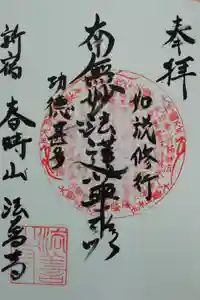 奉拝
如説修行
南無妙法蓮華経
功徳甚多
新宿 春時山 法善寺